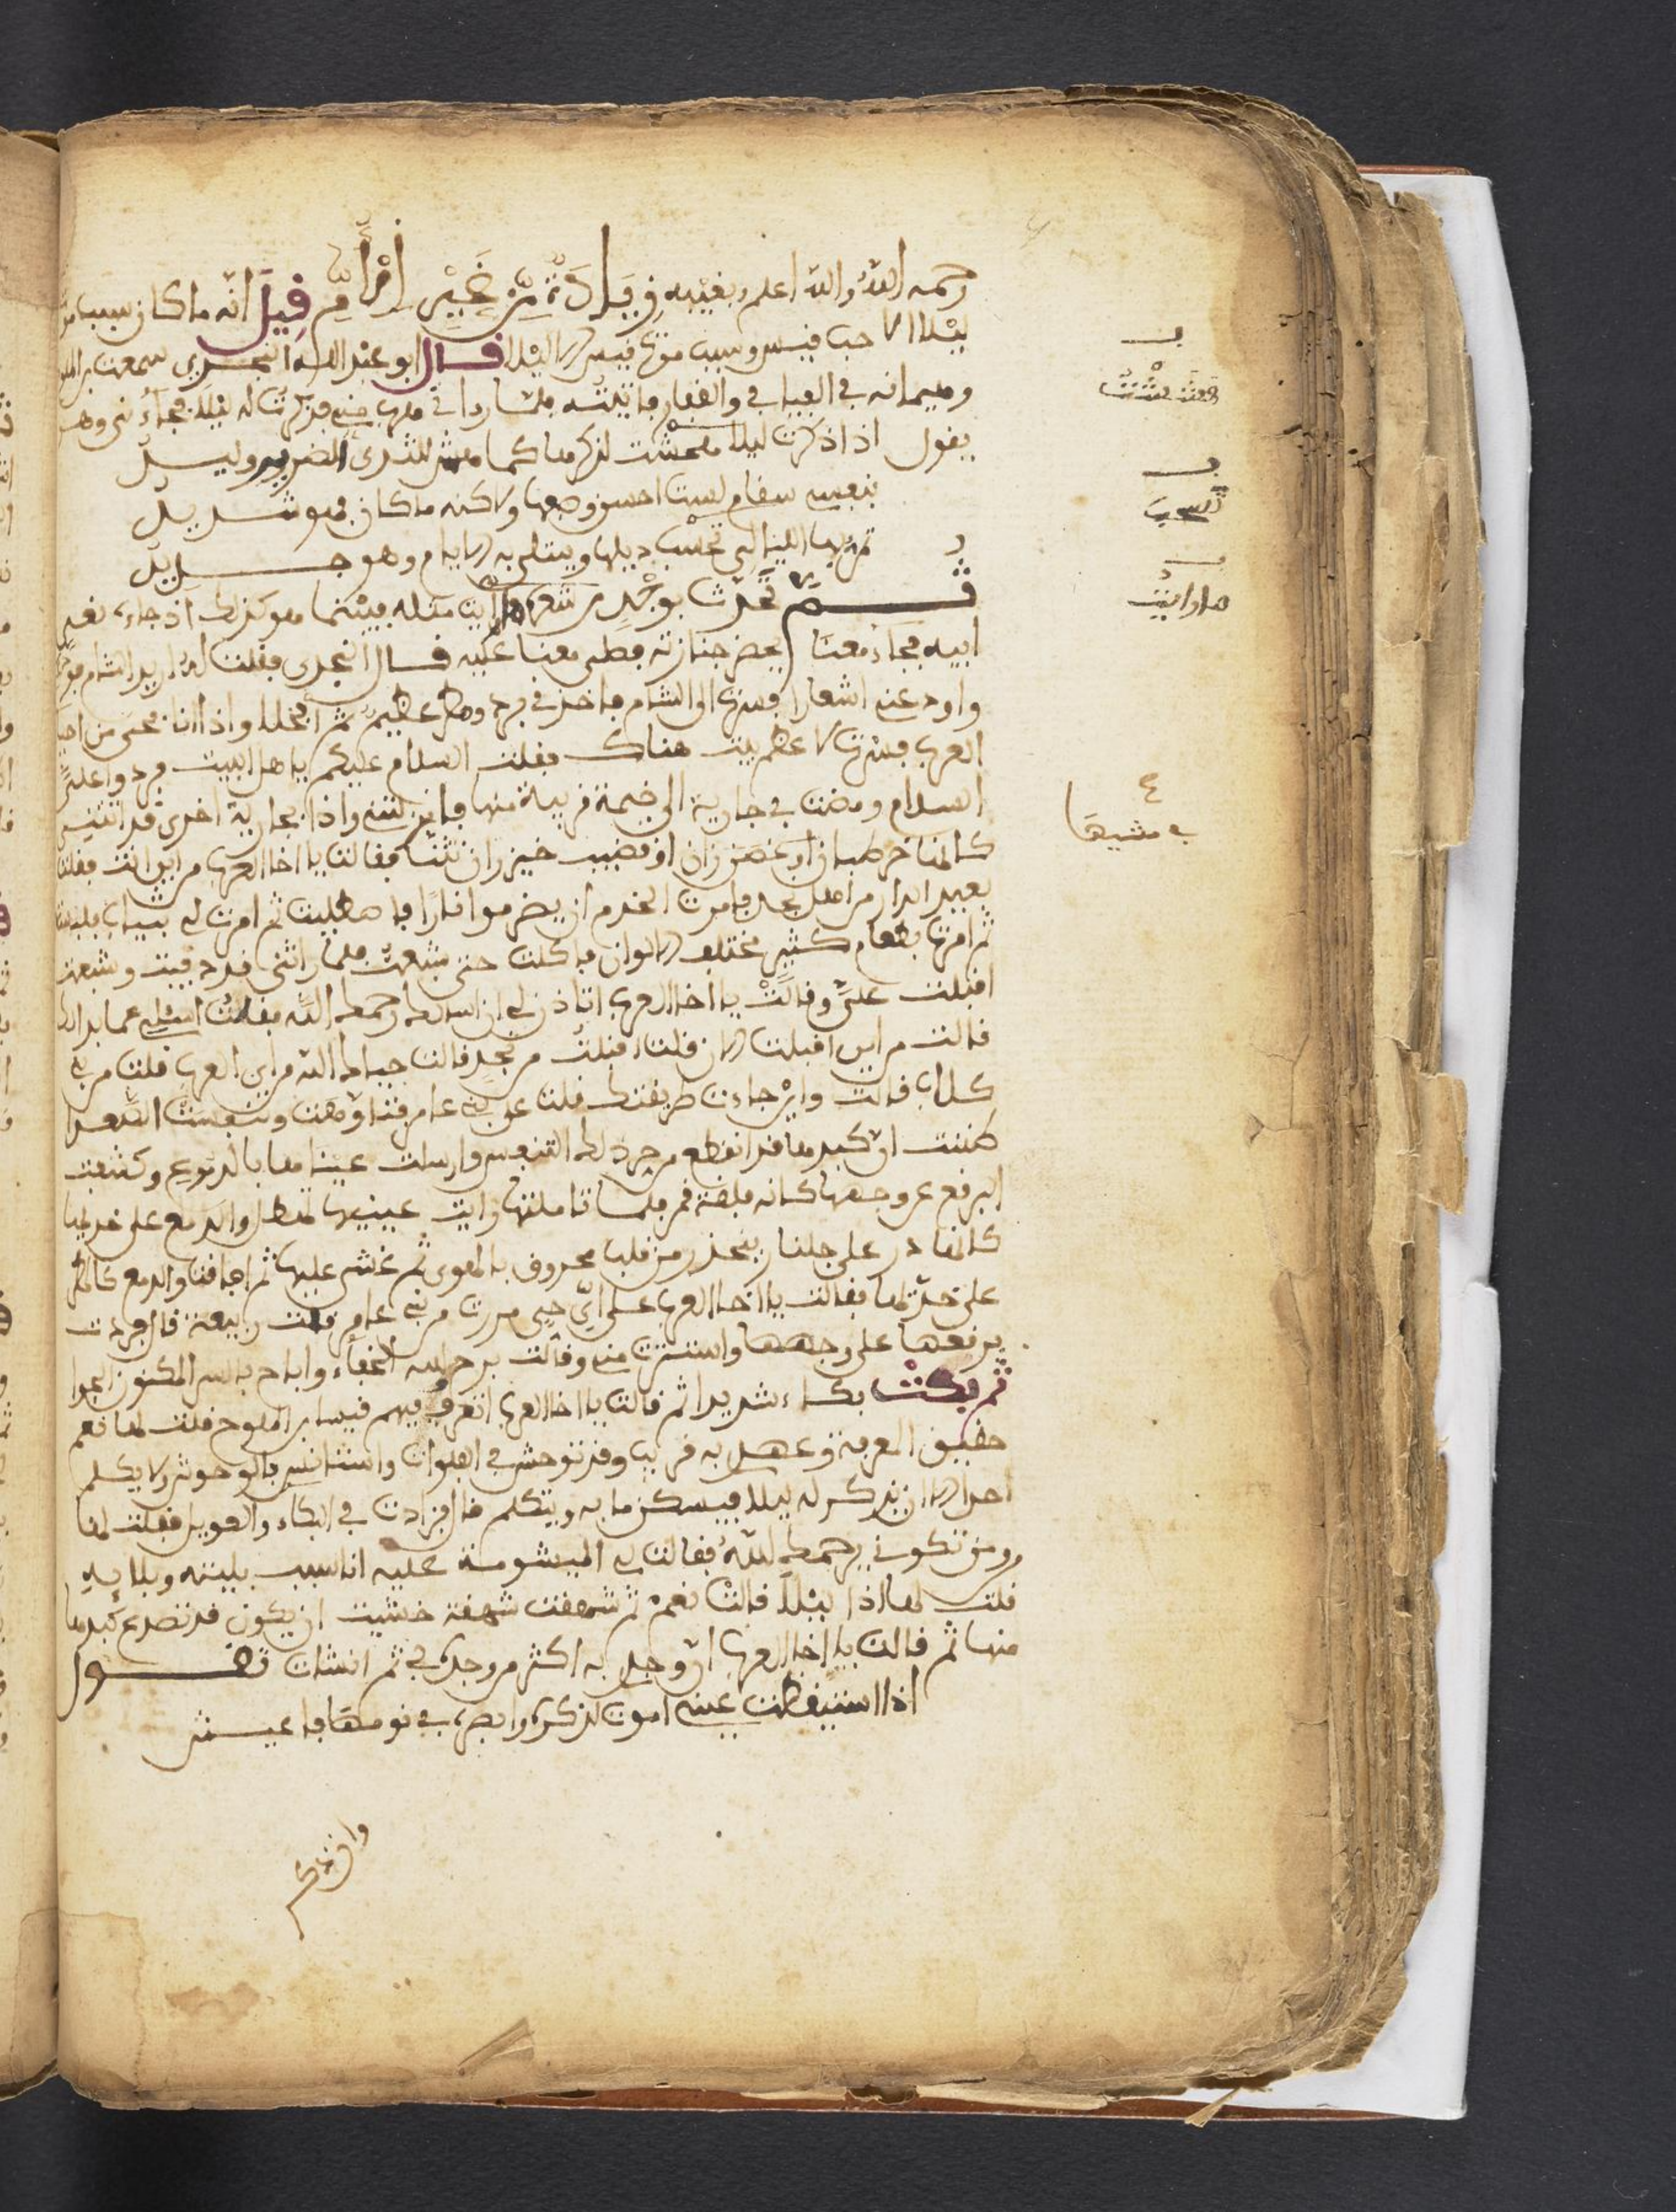 رحمه الله والله اعلم بغيبه زيادة من غير اقرام قيل انه ما كان سبب موت
ليلا الا حب قيس وسبب موت قيس الا ليلا قال ابو عبد الله النجدي سمعت بن الملوح
وهيمانه في الفيافي والقفار فاتيته فلما راني هرب مني فذكرت له ليلا فجاء ني وهو
يقول اذا ذكرت ليلا هششت لذكرها كما هش للثدي الضرير وليد
بنفسي سقام لست احسن وصفها ولاكنه ما كان فهو شديد
تمر بها الليالي تحسب ذيلها ويبتلى به الايام وهو جديد
ثم تحدث بوجد من شعره ما رايت مثله فبينما هو كذلك اذ جاء نعي
ابيه فجاء معنا لبعض جنازته فصلى معنا عليه قال النجدي فقلت له اريد الشام
واود عني اشعارا فسرت الى الشام فاخذني برد ومطر عظيم ثم انجلا واذا انا بحي من احياء
العرب فسرت لاعظم بيت هناك فقلت السلام عليكم يا هل البيت فردوا علي
السلام ومضت بي جارية الى خيمة قريبة منها فانزلتني واذا بجارية اخرى قد اتتني
كانها خوط بان او غصن زان او قضيب خيزران تثنا فقالت يا اخا العرب من اين انت فقلت
بعيد الدار من اهل نجد فامرت الخدم ان يضرموا نارا فاصطليت ثم امرت لي بثياب فلبستها
ثم امرت بطعام كثير مختلف الالوان فاكلت حتى شبعت فلما راتني قد دفيت وشبعت
اقبلت علي وقالت يا اخا العرب اتاذن لي ان اسالك رحمك الله فقلت اسئلي عما بدا لك
قالت من اين اقبلت الان قلت اقبلت من نجد قالت حياك الله من اين العرب قلت من بني
كلاب قالت واين جادت طريقتك قلت عن بني عامر فتاوهت وتنفست الصعدا
ظننت ان كبدها قد انقطع من حر ذلك التنفس وارسلت عيناها بالدموع وكشفت
البرقع عن وجهها كانه فلقة قمر فلما تاملتها رايت عينيها تهطل والدمع على خديها
كانها در على جلنار ينحدر من قلب محروق بالهوى ثم غشي عليها ثم افاقت والدمع كالمطر
على خديها فقالت يا اخا العرب على اي حي مررت من بني عامر قلت ربيعة قال فردت
برقعها على وجهها واستترت مني وقالت برح الخفاء واباح بالسر المكنون الجوا
ثم بكت بكاء شديدا ثم قالت يا اخا العرب اتعرف فيهم قيسا بن الملوح فقلت لها نعم
حقيق المعرفة وعهدي به قريب وقد توحش في الفلوات واستانس بالوحوش لا يكلم
احدا الا ان تذكر له ليلا فيسكن ما به ويتكلم قال فزادت في البكاء والعويل فقلت لها
ومن تكوني يرحمك الله فقالت لي الميشومة عليه انا سبب بليته وبلايه
قلت لها اذا ليلا قالت نعم ثم شهقت شهقة خشيت ان يكون قد تصدع كبدها
منها ثم قالت يا اخا العرب ان وجدي به اكثر من وجده بي ثم انشات تقول
اذا استيقظت عيني اموت لذكره وابصره في نومها فاعيش
هششت
تحسب
ما رايت
في مشيها